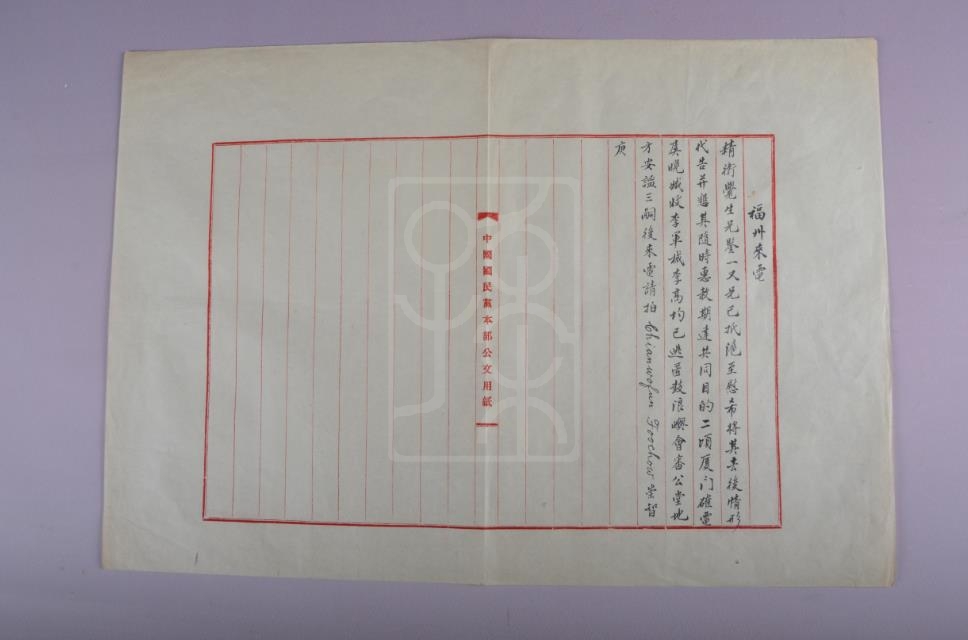 福州來電
精衛覺生兄鑒一又兄已抵滬至慰希将其去後情形
代告并懇其隨時惠教期達共同目的二頃厦门確電
莫曉城收李軍械李高均已逃匿鼓浪嶼會審公堂地
方安謐三嗣後來電請拍 Chianwofun Foochow 崇智
庚
中國國民黨本部公文用紙